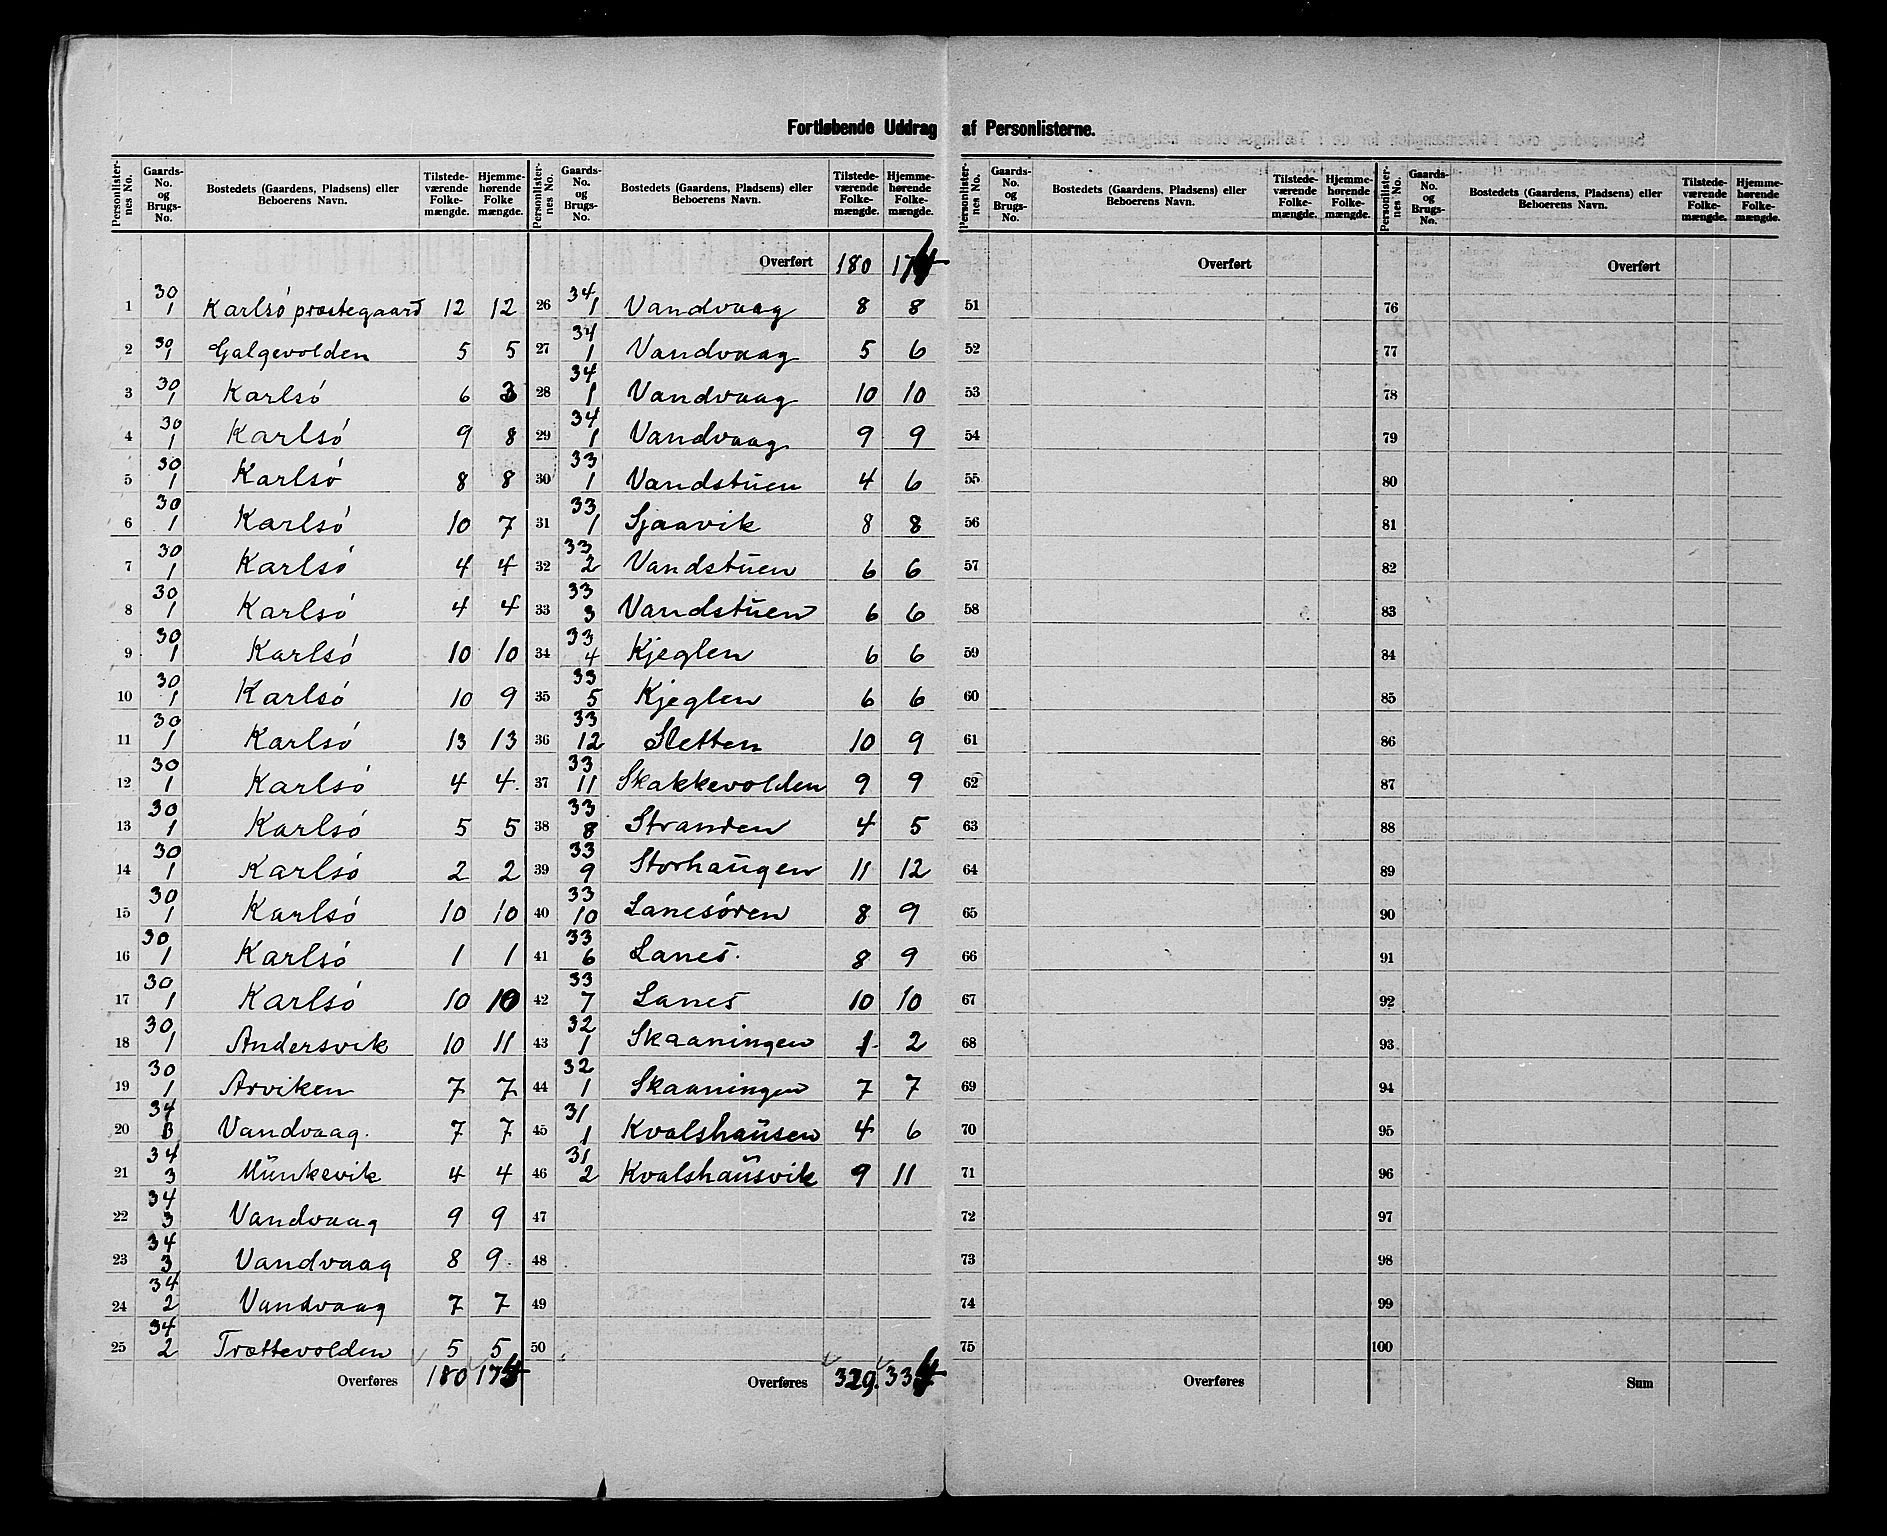 Fortløbende Uddrag af Personlisterne.
Personlister-nes No. | Gaards-No. og Brugs-No. | Bostedets (Gaardens, Pladsens) eller Beboerens Navn. | Tilstede-værende Folke-mængde. | Hjemme-hørende Folke mængde.
1 30/1 Karlsö præstegaard 12 12
2 30/1 Galgevolden 5 5
3 30/1 Karlsö 6 3
4 30/1 Karlsö 9 8
5 30/1 Karlsö 8 8
6 30/1 Karlsö 10 7
7 30/1 Karlsö 4 4
8 30/1 Karlsö 4 4
9 30/1 Karlsö 10 10
10 30/1 Karlsö 10 9
11 30/1 Karlsö 13 13
12 30/1 Karlsö 4 4
13 30/1 Karlsö 5 5
14 30/1 Karlsö 2 2
15 30/1 Karlsö 10 10
16 30/1 Karlsö 1 1
17 30/1 Karlsö 10 10
18 30/1 Andersvik 10 11
19 30/1 Arviken 7 7
20 34/3 Vandvaag. 7 7
21 34/3 Munkevik 4 4
22 34/3 Vandvaag 9 9
23 34/3 Vandvaag 8 9
24 34/2 Vandvaag 7 7
25 34/2 Trættevolden 5 5
Overføres 180 174
Personlister-nes No. | Gaards-No. og Brugs-No. | Bostedets (Gaardens, Pladsens) eller Beboerens Navn. | Tilstede-værende Folke-mængde. | Hjemme-hørende Folke-mængde.
Overført 180 174
26 34/1 Vandvaag 8 8
27 34/1 Vandvaag 5 6
28 34/1 Vandvaag 10 10
29 34/1 Vandvaag 9 9
30 33/1 Vandstuen 4 6
31 33/1 Sjaavik 8 8
32 33/2 Vandstuen 6 6
33 33/3 Vandstuen 6 6
34 33/4 Kjeglen 6 6
35 33/5 Kjeglen 6 6
36 33/12 Sletten 10 9
37 33/11 Skakkevolden 9 9
38 33/8 Stranden 4 5
39 33/9 Storhaugen 11 12
40 33/10 Lanesören 8 9
41 33/6 Lanes. 8 9
42 33/7 Lanes 10 10
43 32/1 Skaaningen 1 2
44 32/1 Skaaningen 7 7
45 31/1 Kvalshausen 4 6
46 31/2 Kvalshausvik 9 11
47
48
49
50
Overføres 329. 334
Personlister-nes No. | Gaards-No. og Brugs-No. | Bostedets (Gaardens, Pladsens) eller Beboerens Navn. | Tilstede-værende Folke-mængde. | Hjemme-hørende Folke-mængde.
Overført
51
52
53
54
55
56
57
58
59
60
61
62
63
64
65
66
67
68
69
70
71
72
73
74
75
Overføres
Personlister-nes No. | Gaards-No. og Brugs-No. | Bostedets (Gaardens, Pladsens) eller Beboerens Navn. | Tilstede-værende Folke-mængde. | Hjemme-hørende Folke-mængde.
Overført
76
77
78
79
80
81
82
83
84
85
86
87
88
89
90
91
92
93
94
95
96
97
98
99
100
Sum